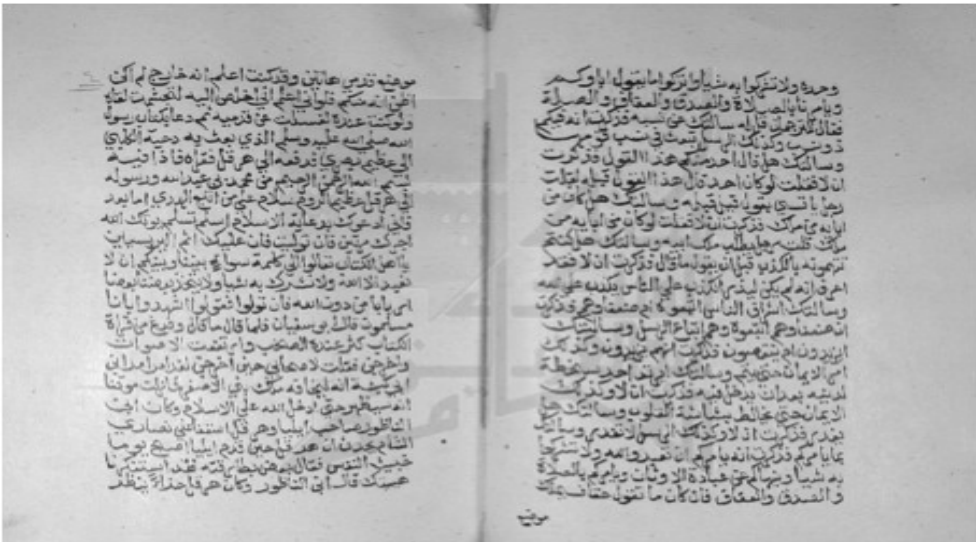 وحده ولا تشركوا به شيا واتركوا ما يقول اباوكم
ويامرنا بالصلاة والصدق والعفاف والصلة
فقال للترجمان قل له سالتك عن نسبه فذكرت انه فيكم
ذو نسب وكذلك الرسل تبعث في نسب قومها
وسالتك هل قال احد منكم هذا القول فذكرت
ان لا فقلت لو كان احد قال هذا القول قبله لقلت
رجل ياتسي بقول قيل قبله وسالتك هل كان من
ابايه من ملك فذكرت ان لا فقلت لو كان من ابايه من
ملك قلت رجل يطلب ملك ابيه وسالتك هل كنتم
تتهمونه بالكذب قبل ان يقول ما قال فذكرت ان لا فقد
اعرف انه لم يكن ليذر الكذب على الناس ويكذب على الله
وسالتك اشراف الناس اتبعوه ام ضعفاوهم فذكرت
ان ضعفاوهم اتبعوه وهم اتباع الرسل وسالتك
ايزيدون ام ينقصون فذكرت انهم يزيدون وكذلك
امر الايمان حتى يتم وسالتك ايرتد احد سخطة
لدينه بعد ان يدخل فيه فذكرت ان لا وكذلك
الايمان حين تخالط بشاشته القلوب وسالتك هل
يغدر فذكرت ان لا وكذلك الرسل لا تغدر وسالتك
بما يامركم فذكرت انه يامركم ان تعبدوا الله ولا تشركوا
به شيا وينهاكم عن عبادة الاوثان ويامركم بالصلاة
والصدق والعفاف فان كان ما تقول حقا فسيملك
موضع
موضع قدمي هاتين وقد كنت اعلم انه خارج لم اكن
اظن انه منكم فلو اني اعلم اني اخلص اليه لتجشمت لقاه
ولو كنت عنده لغسلت عن قدميه ثم دعا بكتاب رسول
الله صلى الله عليه وسلم الذي بعث به دحية الكلبي
الى عظيم بصرى فدفعه الى هرقل فقراه فاذا فيه
بسم الله الرحمن الرحيم من محمد بن عبد الله ورسوله
الى هرقل عظيم الروم سلام على من اتبع الهدى اما بعد
فاني ادعوك بدعاية الاسلام اسلم تسلم يوتك الله
اجرك مرتين فان توليت فان عليك اثم اليريسيين
يا اهل الكتاب تعالوا الى كلمة سواء بيننا وبينكم ان لا
نعبد الا الله ولا نشرك به شيا ولا يتخذ بعضنا بعضا
اربابا من دون الله فان تولوا فقولوا اشهدوا بانا
مسلمون قال ابو سفيان فلما قال ما قال وفرغ من قراة
الكتاب كثر عنده الصخب وارتفعت الاصوات
واخرجنا فقلت لاصحابي حين اخرجنا لقد امر امر ابن
ابي كبشة انه يخافه ملك بني الاصفر فما زلت موقنا
انه سيظهر حتى ادخل الله علي الاسلام وكان ابن
الناظور صاحب ايليا وهرقل اسقفا على نصارى
الشام يحدث ان هرقل حين قدم ايليا اصبح يوما
خبيث النفس فقال بعض بطارقته قد استنكرنا
هيئتك قال ابن الناظور وكان هرقل حذاء ينظر